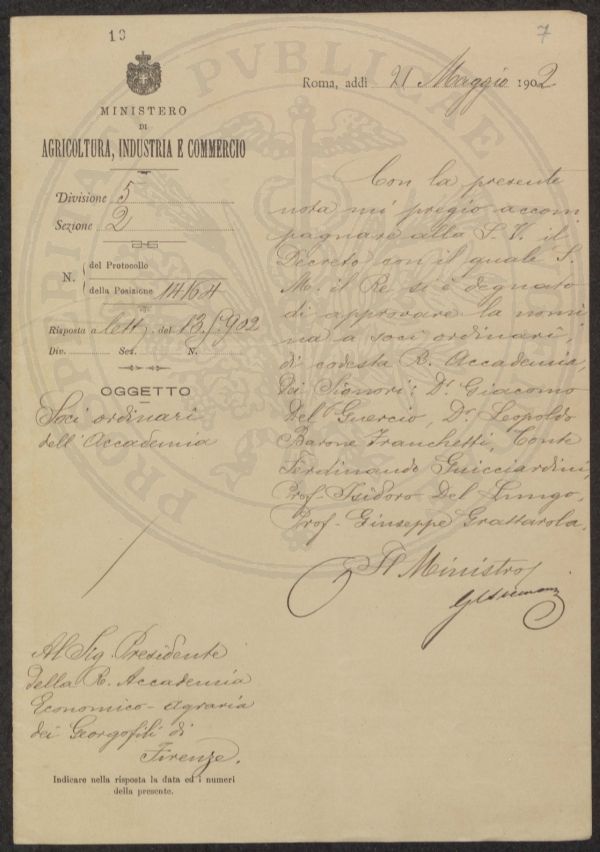 19
7
MINISTERO
DI
AGRICOLTURA, INDUSTRIA E COMMERCIO
Divisione 5
Sezione 2
N. del Protocollo
della Posizione 14164
Risposta a lett. del 13.5.902
Div. Sez. N.
OGGETTO
Soci ordinari
dell'Accademia
Roma, addì 21 Maggio 1902
Con la presente
nota mi pregio accom
pagnare alla S. V. il
Decreto con il quale S.
M. il Re si è degnato
di approvare la nomi
na a soci ordinari,
di codesta R. Accademia,
dei Signori: Dr. Giacomo
Del Guercio, Dr. Leopoldo
Barone Franchetti, Conte
Ferdinando Guicciardini,
Prof. Isidoro Del Lungo,
Prof. Giuseppe Grattarola.
Il Ministro
Al Sig. Presidente
della R. Accademia
Economico-agraria
dei Georgofili di
Firenze.
Indicare nella risposta la data ed i numeri
della presente.
PROSPERITATI PVBLICAE